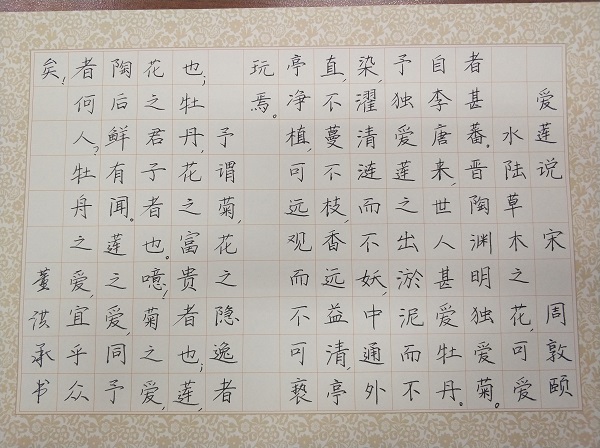 爱莲说 宋 周敦颐
水陆草木之花,可爱
者甚蕃。晋陶渊明独爱菊。
自李唐来,世人甚爱牡丹。
予独爱莲之出淤泥而不
染,濯清涟而不妖,中通外
直,不蔓不枝,香远益清,亭
亭净植,可远观而不可亵
玩焉。
予谓菊,花之隐逸者
也;牡丹,花之富贵者也;莲,
花之君子者也。噫!菊之爱,
陶后鲜有闻。莲之爱,同予
者何人?牡丹之爱,宜乎众
矣! 董洪承书